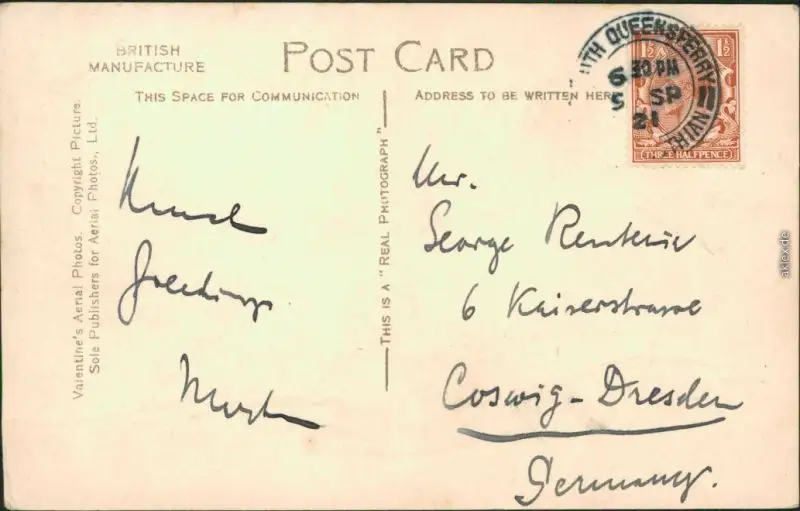 BRITISH
MANUFACTURE
POST CARD
THIS SPACE FOR COMMUNICATION
ADDRESS TO BE WRITTEN HERE
Valentine's Aerial Photos. Copyright Picture.
Sole Publishers for Aerial Photos., Ltd.
THIS IS A "REAL PHOTOGRAPH"
UTH QUEENSFERRY
6 30 PM
5 SP
21
1½ 1½
THREE HALFPENCE
Greetings
Mr.
George
6 Kaiserstrasse
Coswig-Dresden
Germany.
akpool.de